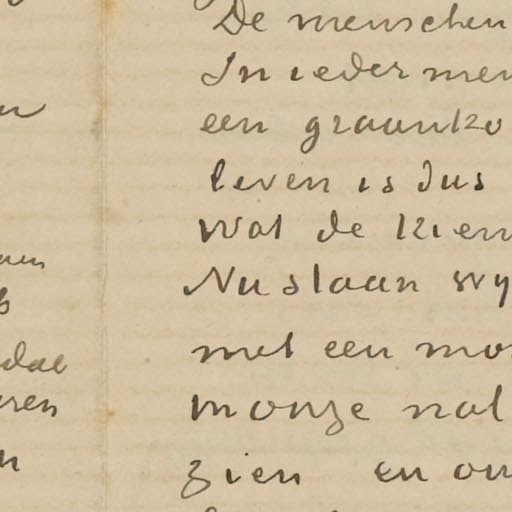 De menschen
In ieder men
een graanko
leven is dus
Wat de kiem
Nu slaan wy
met een mo
monze nat
zien en on